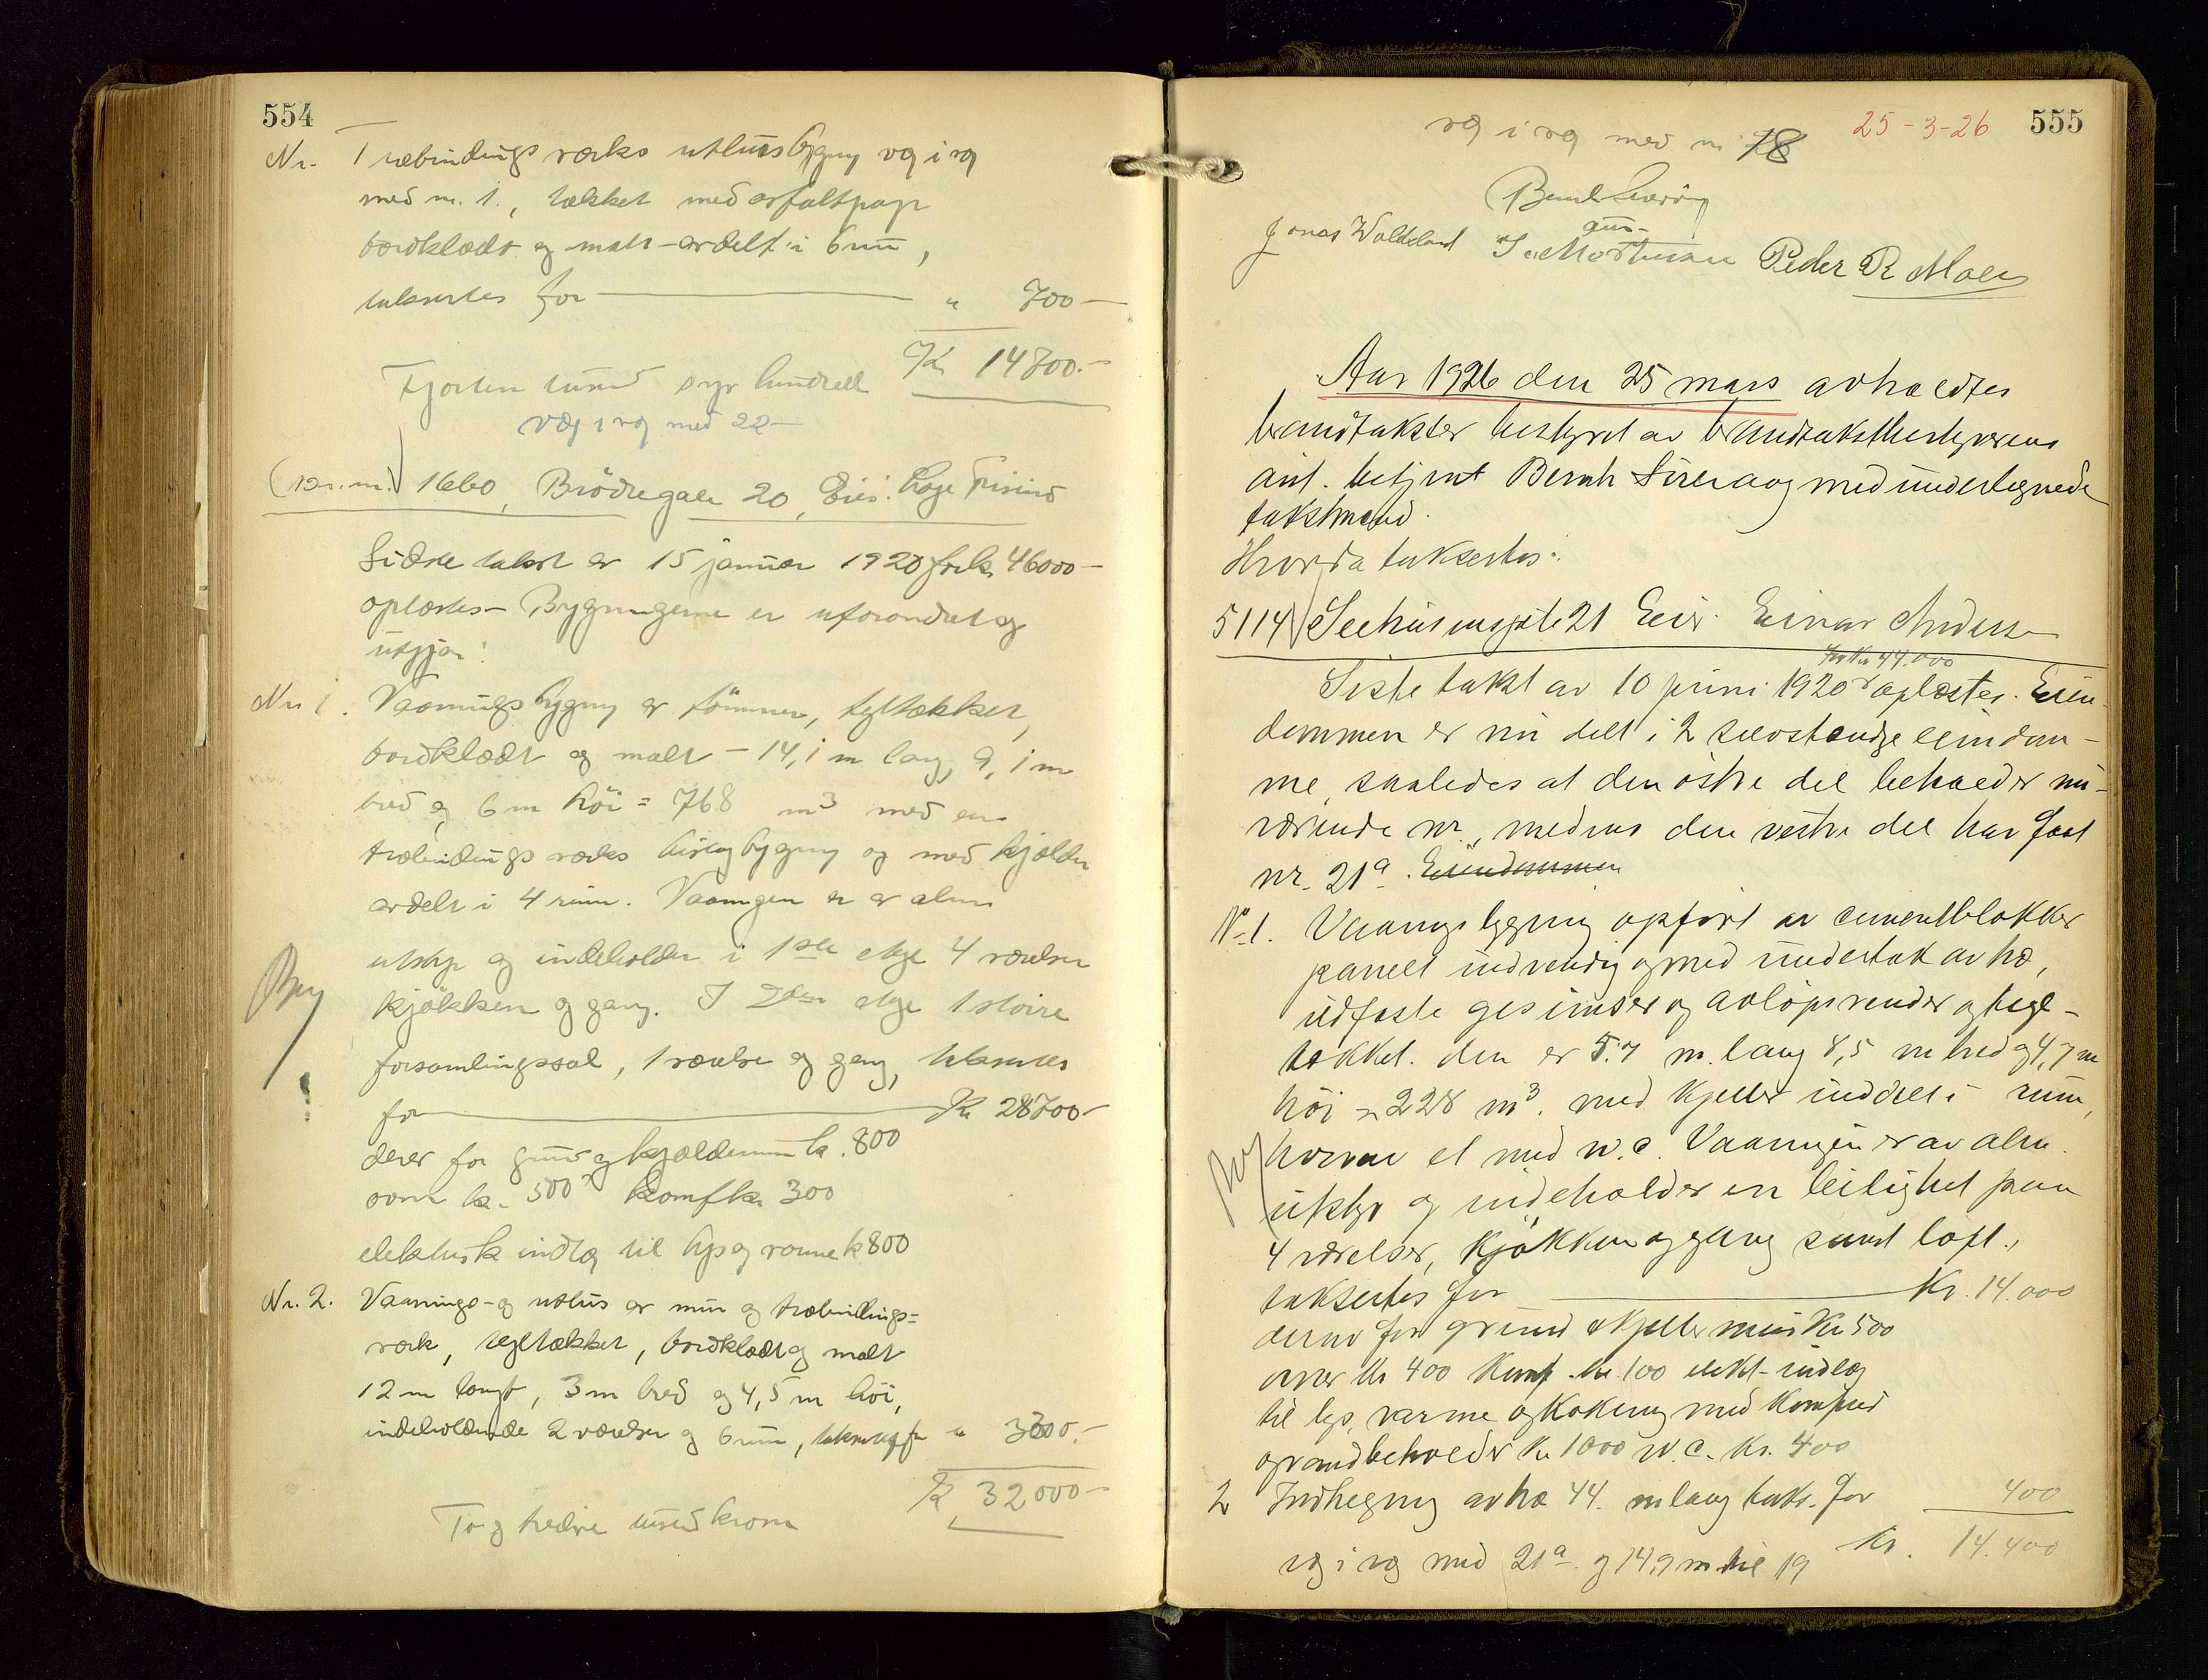 554
Nr. Træbindingsværks uthusbygning væg i væg
med nr. 1., tækket med asfaltpap
bordklædt og malt - avdelt i 6 rum,
takseres for " 700-
Kr 14700.-
Fjorten tusind syv hundrede
væg i væg med 22-
(Br. nr.) 1660, Brödregate 20, Eier: Loge Frisind
Sidste takst av 15 januar 1920 for kr. 46000-
oplæstes - Bygningerne er uforandret og
utgjør:
Nr 1. Vaaningsbygning av tömmer, tegltækket,
bordklædt og malt - 14,1 m lang, 9,1 m
bred og 6 m höi = 768 m3 med en
træbindingsværks bislagbygning og med kjælder
avdelt i 4 rum. Vaaningen er av alm
utstyr og indeholder i 1ste etage 4 værelser
kjökken og gang. I 2den etage 1 större
forsamlingssal, 1 værelse og gang, takseres
for Kr 28700-
derav for grund og kjældermur kr. 800
ovne kr. 500 komf kr 300
elektrisk indlæg til lys og varme kr 800
Nr. 2. Vaanings- og uthus av mur og træbindings=
værk, tegltækket, bordklædt og malt
12 m langt, 3 m bred og 4,5 m höi,
indeholdende 2 værelser og 6 rum, takseres for " 3300.-
Kr 32000-
To og tredive tusind kroner
25-3-26 555
væg i væg med nr 18
Jonas Waldeland Peder R Moen
Aar 1926 den 25 mars avholdtes
brandtakster bestyret av brandtakstbestyrerens
aut. betjent Bernh Sirevaag med undertegnede
takstmænd.
Hvorda taksertes:
5114 Seehusensgate 21 Eier: Einar Andersen
for Kr 44.000
Siste takst av 10 juni 1920 oplæstes. Eien-
dommen er nu delt i 2 selvstændige eiendom-
me, saaledes at den östre del beholder nu-
værende nr., medens den vestre del har faat
nr. 21a. Eiendommen
No 1. Vaaningsbygning opfört av cementblokker
panelt indvendig og med undertak av træ,
utfaste gesimser og avlöpsrender og tegl-
tækket. den er 5.7 m. lang 8,5 m bred og 4,7 m
höi = 228 m3. med kjeller inddelt i rum,
hvorav et med w.c. Vaaningen er av alm.
utstyr og indeholder en leilighet paa
4 værelser, kjökken og gang samt loft.,
taksertes for Kr. 14.000
derav for grund & kjellermur Kr 500
ovner Kr 400 Komf. kr. 100 elekt-indlæg
til lys, varme og kokning med komfur
og vandbeholder Kr 1000 W.C. Kr. 400
2 Indhegning av træ 44. m lang taks. for 400
Kr. 14.400
væg i væg med 21a og 14,9 m til 19